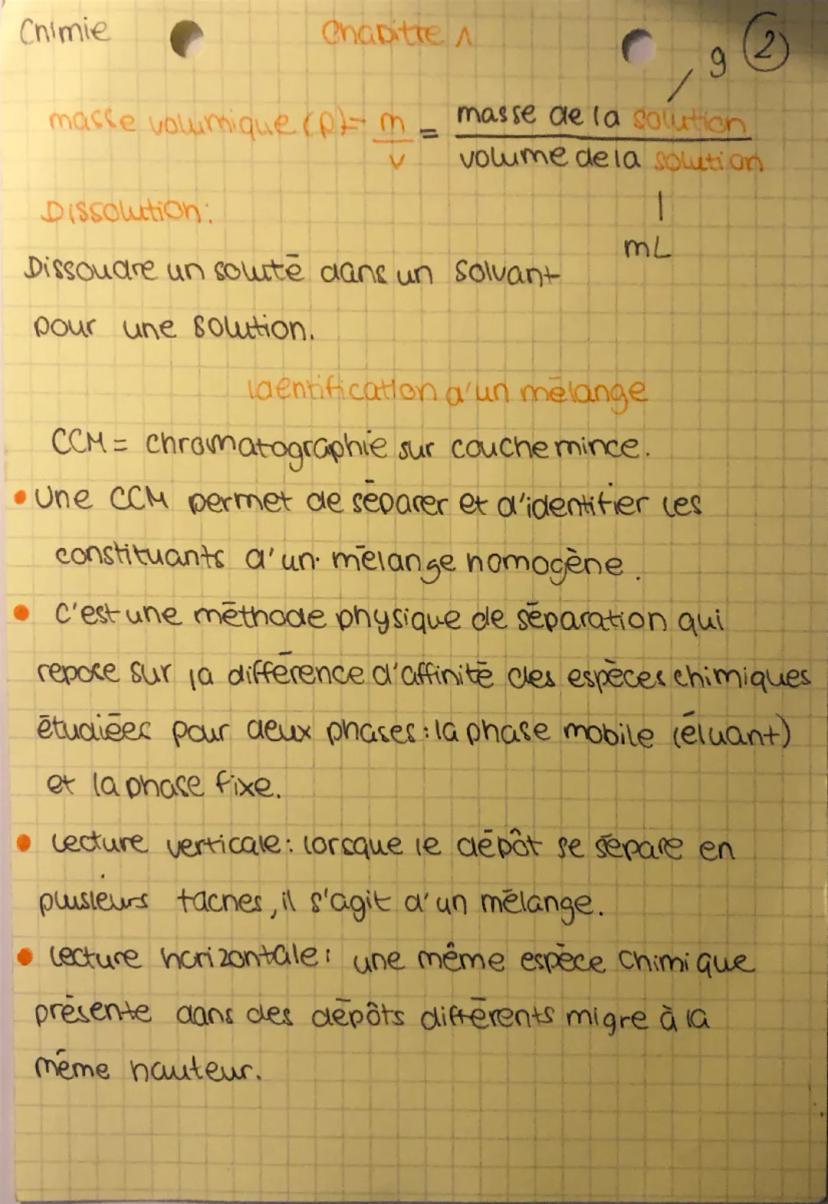 Chimie Chapitre 1
g 2
masse volumique (ρ) = m/v = masse de la solution / volume de la solution
mL
Dissolution:
Dissoudre un soluté dans un solvant
pour une solution.
Identification d'un mélange
CCM = chromatographie sur couche mince.
• Une CCM permet de séparer et d'identifier les
constituants d'un mélange homogène.
• C'est une méthode physique de séparation qui
repose sur la différence d'affinité des espèces chimiques
étudiées pour deux phases : la phase mobile (éluant)
et la phase fixe.
• Lecture verticale : lorsque le dépôt se sépare en
plusieurs taches, il s'agit d'un mélange.
• Lecture horizontale : une même espèce chimique
présente dans des dépôts différents migre à la
même hauteur.